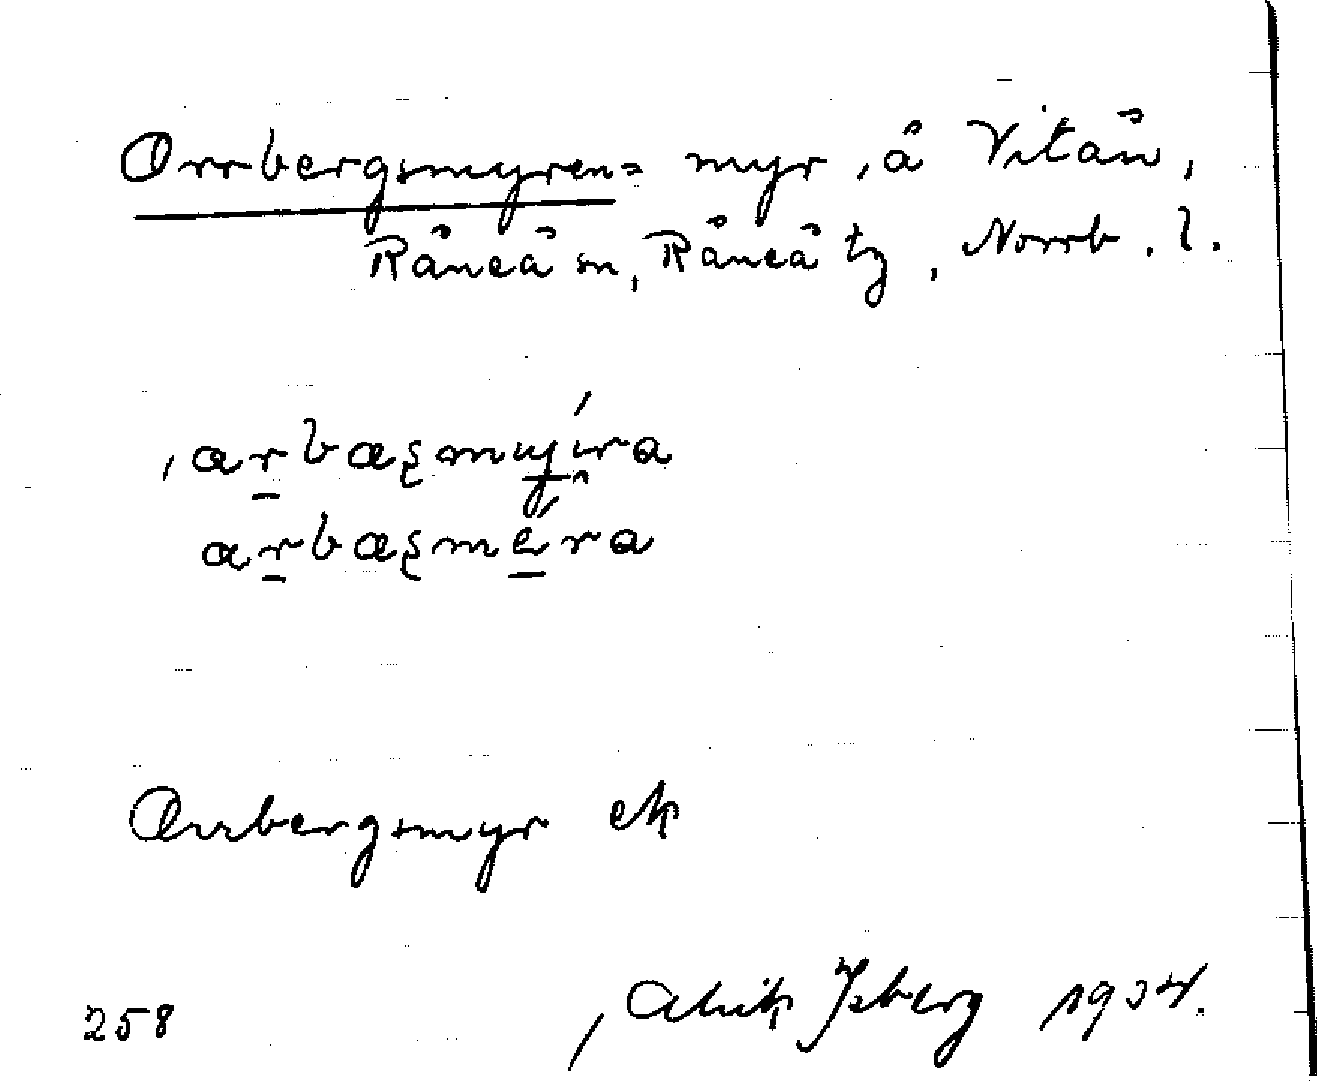 Orrbergsmyren = myr, å Vitån,
Råneå sn, Råneå tg, Norrb. l.
Orrbergsmyr ek
258
Alrik Isberg 1934.